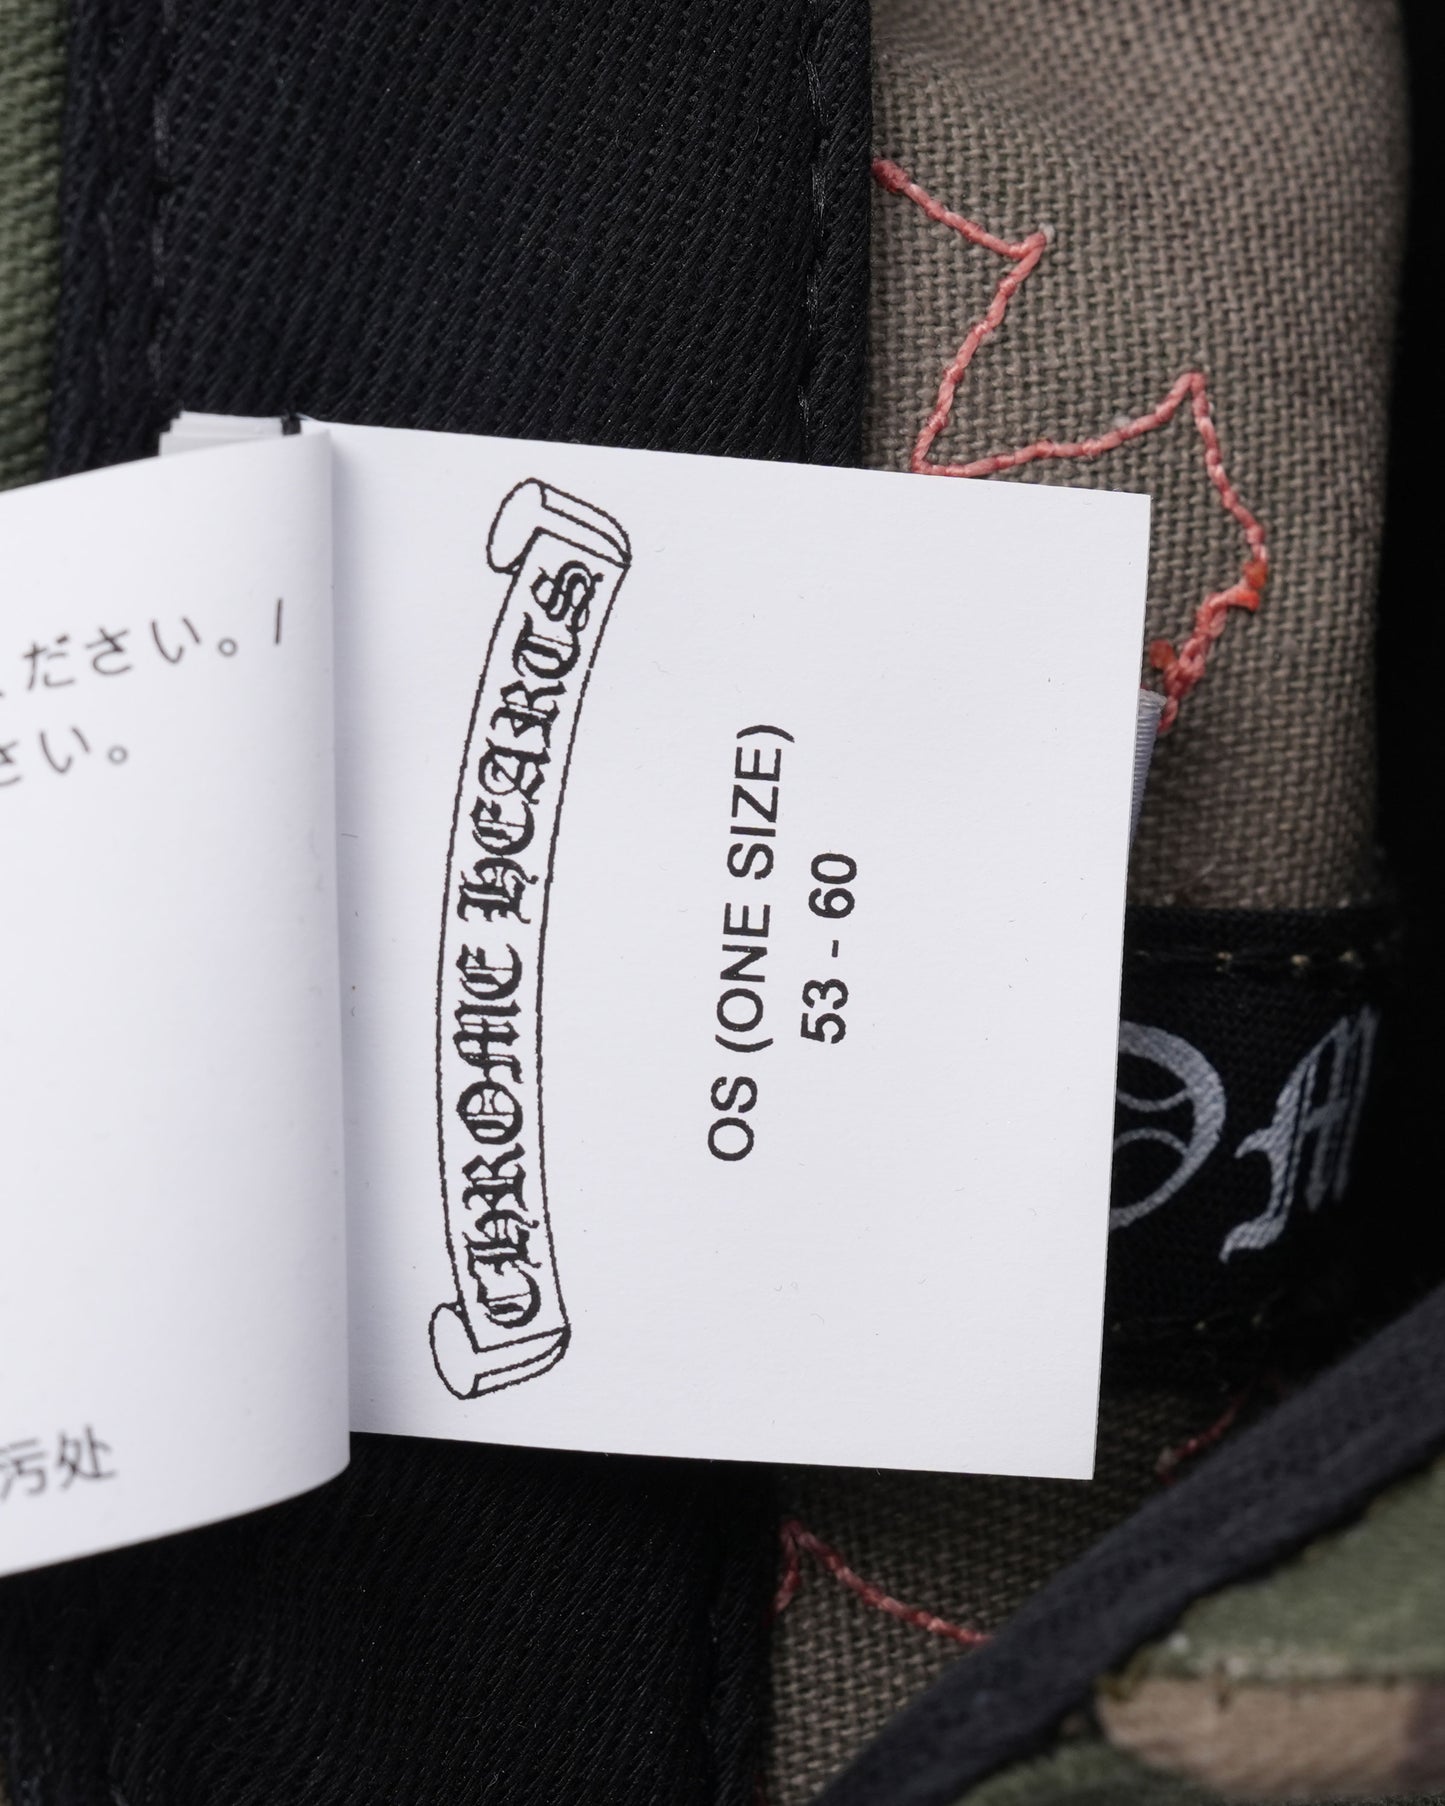 ださい。/
さい。
污处
CHROME HEARTS
OS (ONE SIZE)
53 - 60